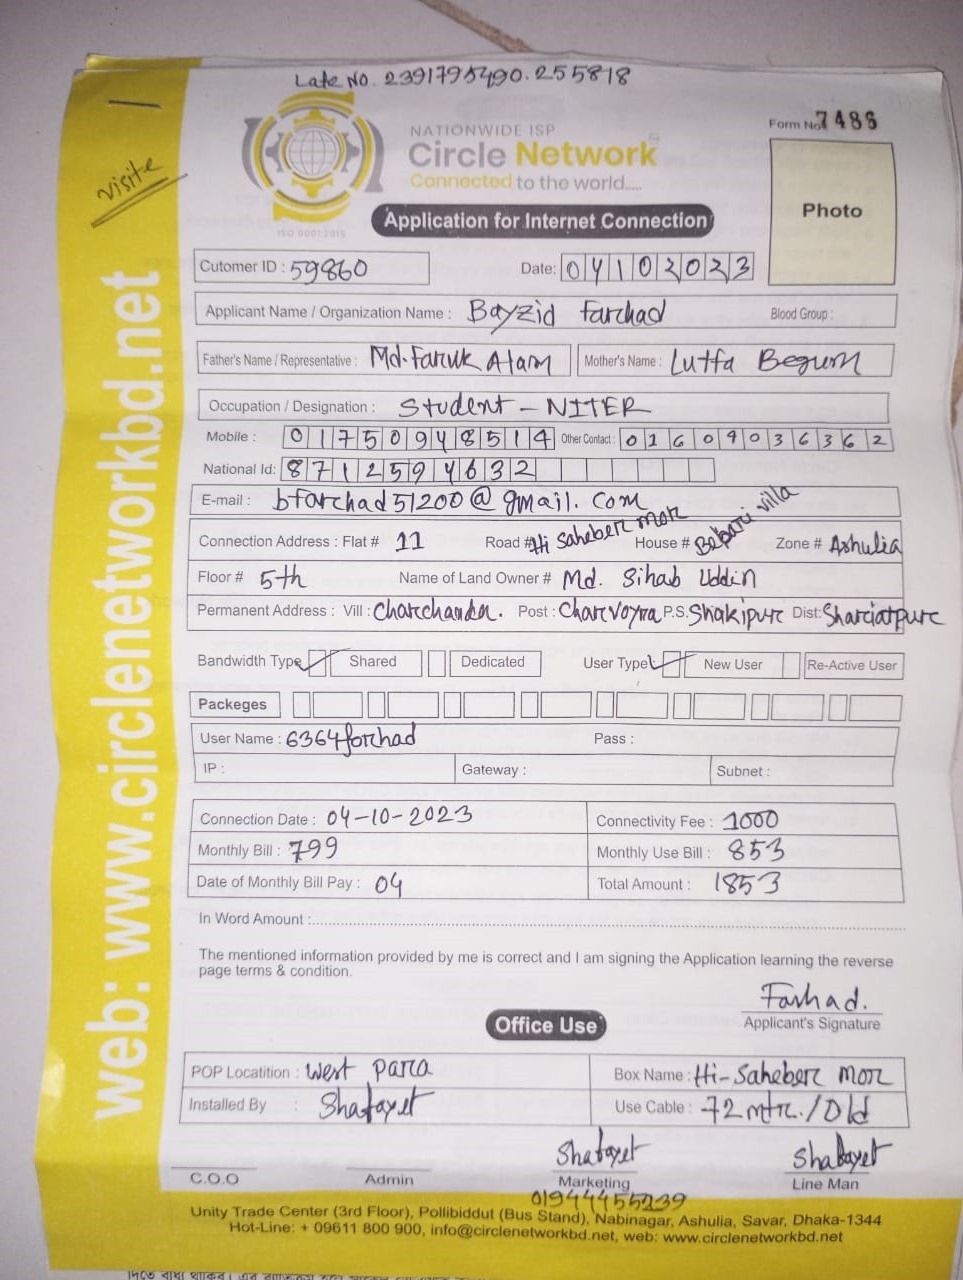 Late No. 2391795490.255818
Form No 7486
visite
NATIONWIDE ISP
Circle Network
Connected to the world.....
ISO 9001:2015
Photo
Application for Internet Connection
Cutomer ID : 59860 Date: 04102023
Applicant Name / Organization Name : Bayzid Farchad Blood Group :
Father's Name / Representative : Md. Faruk Alam Mother's Name : Lutfa Begum
Occupation / Designation : Student - NITER
Mobile : 01750948514 Other Contact : 01609036362
National Id: 8712594632
E-mail : bfarchad51200@gmail.com
Connection Address : Flat # 11 Road # Hi Saheber mor House # Bepari villa Zone # Ashulia
Floor # 5th Name of Land Owner # Md. Sihab Uddin
Permanent Address : Vill : Charchanda. Post : Charvoyra P.S. Shakipur Dist: Shariatpur
Bandwidth Type Shared Dedicated User Type New User Re-Active User
Packeges
User Name : 6364forhad Pass :
IP : Gateway : Subnet :
Connection Date : 04-10-2023 Connectivity Fee : 1000
Monthly Bill : 799 Monthly Use Bill : 853
Date of Monthly Bill Pay : 04 Total Amount : 1853
In Word Amount :
The mentioned information provided by me is correct and I am signing the Application learning the reverse
page terms & condition.
Farhad.
Applicant's Signature
Office Use
POP Locatition : West para Box Name : Hi-Saheber Mor
Installed By : Shafayet Use Cable : 72 mtr./Old
Shafayet Shafayet
C.O.O Admin Marketing Line Man
01944455239
Unity Trade Center (3rd Floor), Pollibiddut (Bus Stand), Nabinagar, Ashulia, Savar, Dhaka-1344
Hot-Line: + 09611 800 900, info@circlenetworkbd.net, web: www.circlenetworkbd.net
web: www.circlenetworkbd.net